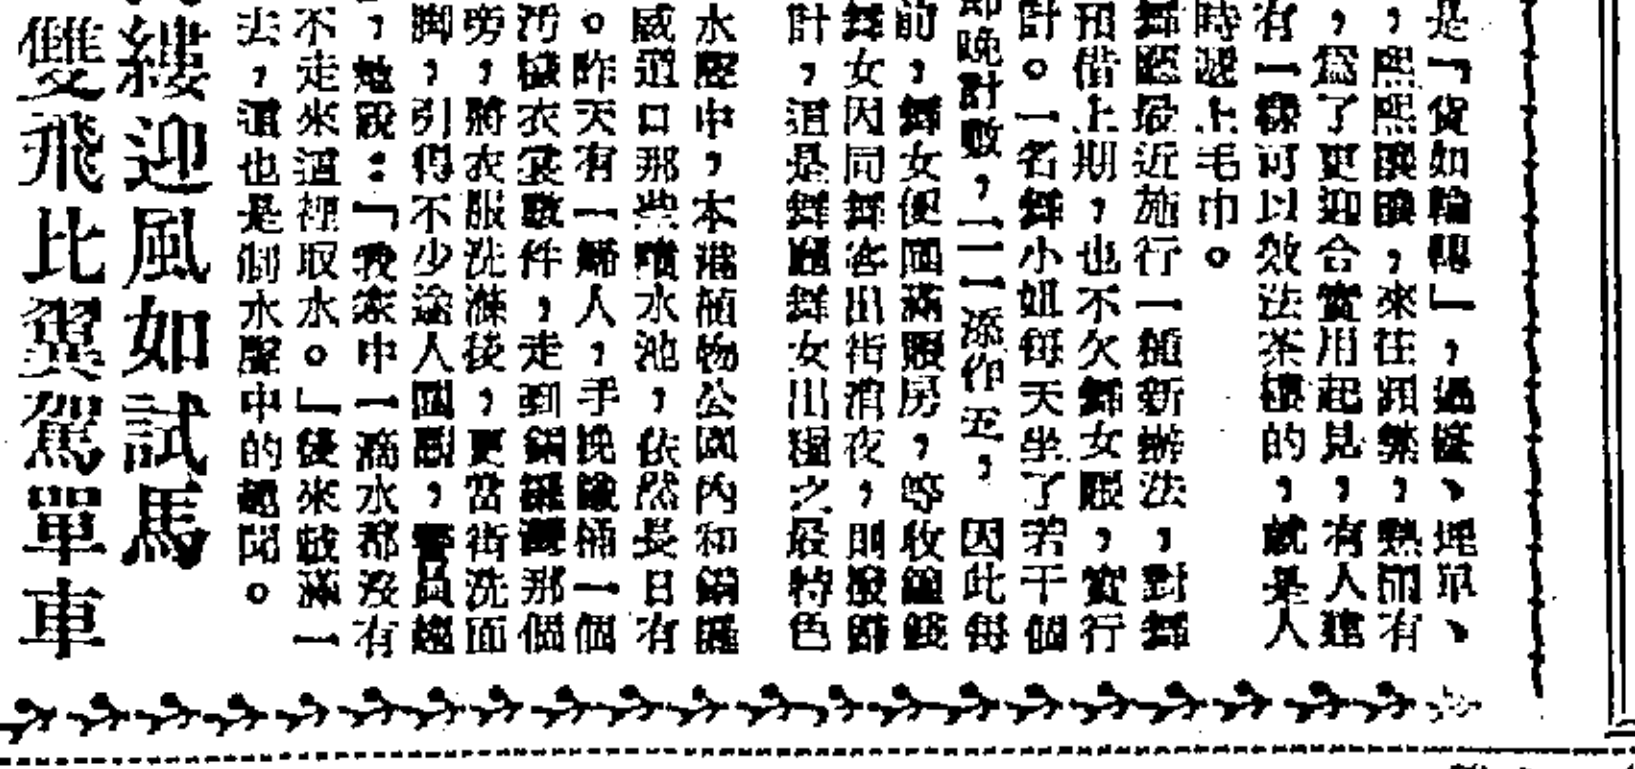 是「貨如輪轉」,過區、埋單、
,熙熙攘攘,來往頻繁,熱鬧有
,爲了更迎合實用起見,有人建
有一樣可以效法茶樓的,就是人
時遞上毛巾。
舞廳最近施行一種新辦法,對舞
預借上期,也不欠舞女賬,實行
計。一名舞小姐每天坐了若干個
即晚計數,二一添作五,因此每
前,舞女便圍滿賬房,等收鐘錢
舞女因同舞客出街消夜,則撥歸
計,這是舞廳舞女出糧之最特色
水壓中,本港植物公園內和銅鑼
威道口那些噴水池,依然長日有
。昨天有一婦人,手挽鐵桶一個
污穢衣裳數件,走到銅鑼灣那個
旁,將衣服洗滌後,更當街洗面
脚,引得不少途人圍觀,警員趨
,她說:「我家中一滴水都沒有
不走來這裡取水。」後來鼓滿一
去,這也是制水聲中的趣聞。
縷迎風如試馬
雙飛比翼駕單車